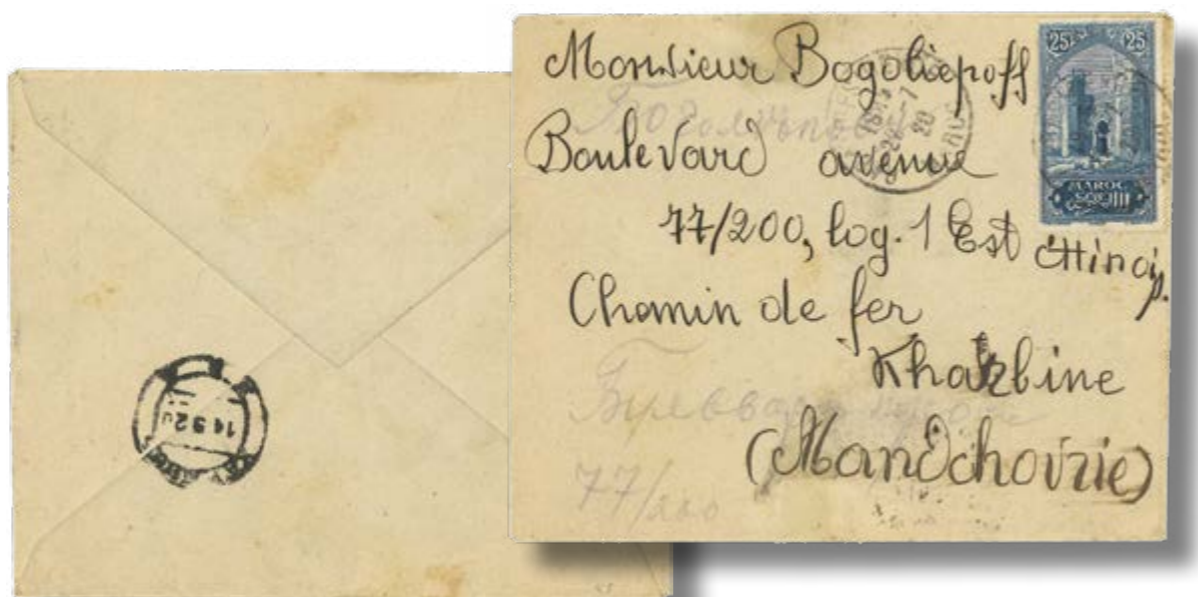 Monsieur Bogoliepoff
Boulevard avenue
77/200, log. 1 Est
Chemin de fer
Kharbine
(Mandchourie)
77/200
25 25
MAROC